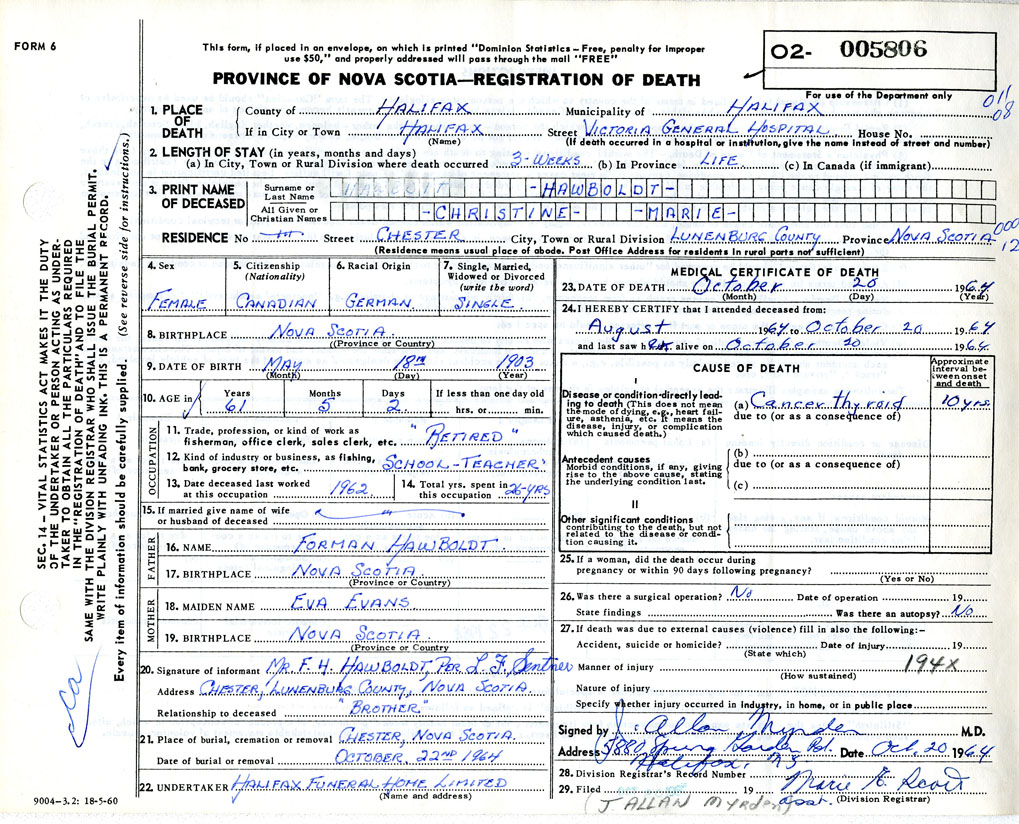 FORM 6
This form, if placed in an envelope, on which is printed "Dominion Statistics – Free, penalty for improper
use $50," and properly addressed will pass through the mail "FREE"
PROVINCE OF NOVA SCOTIA—REGISTRATION OF DEATH
02- 005806
For use of the Department only
011
08
SEC. 14 – VITAL STATISTICS ACT MAKES IT THE DUTY
OF THE UNDERTAKER OR PERSON ACTING AS UNDER-
TAKER TO OBTAIN ALL THE PARTICULARS REQUIRED
IN THE "REGISTRATION OF DEATH" AND TO FILE THE
SAME WITH THE DIVISION REGISTRAR WHO SHALL ISSUE THE BURIAL PERMIT.
WRITE PLAINLY WITH UNFADING INK. THIS IS A PERMANENT RECORD.
Every item of information should be carefully supplied. (See reverse side for instructions.)
1. PLACE OF DEATH
County of HALIFAX Municipality of HALIFAX
If in City or Town HALIFAX Street VICTORIA GENERAL HOSPITAL House No.
(Name) (If death occurred in a hospital or institution, give the name instead of street and number)
2. LENGTH OF STAY (in years, months and days)
(a) In City, Town or Rural Division where death occurred 3-WEEKS (b) In Province LIFE (c) In Canada (if immigrant)
3. PRINT NAME OF DECEASED
Surname or Last Name -HAWBOLDT-
All Given or Christian Names -CHRISTINE- -MARIE-
000
12
RESIDENCE No Street CHESTER City, Town or Rural Division LUNENBURG COUNTY Province NOVA SCOTIA
(Residence means usual place of abode. Post Office Address for residents in rural parts not sufficient)
4. Sex
FEMALE
5. Citizenship (Nationality)
CANADIAN
6. Racial Origin
GERMAN.
7. Single, Married, Widowed or Divorced (write the word)
SINGLE.
8. BIRTHPLACE NOVA SCOTIA.
(Province or Country)
9. DATE OF BIRTH MAY 18TH 1903
(Month) (Day) (Year)
10. AGE in Years Months Days If less than one day old
61 5 2 hrs. or min.
OCCUPATION
11. Trade, profession, or kind of work as
fisherman, office clerk, sales clerk, etc. "RETIRED"
12. Kind of industry or business, as fishing,
bank, grocery store, etc. SCHOOL-TEACHER'
13. Date deceased last worked at this occupation 1962
14. Total yrs. spent in this occupation 26-YRS
15. If married give name of wife
or husband of deceased
FATHER
16. NAME FORMAN HAWBOLDT.
17. BIRTHPLACE NOVA SCOTIA.
(Province or Country)
MOTHER
18. MAIDEN NAME EVA EVANS
19. BIRTHPLACE NOVA SCOTIA.
(Province or Country
20. Signature of informant MR. F. H. HAWBOLDT, PER L. F. Sentner
Address CHESTER, LUNENBURG COUNTY, NOVA SCOTIA.
Relationship to deceased "BROTHER"
21. Place of burial, cremation or removal CHESTER, NOVA SCOTIA.
Date of burial or removal OCTOBER, 22ND 1964
22. UNDERTAKER HALIFAX FUNERAL HOME LIMITED
(Name and address)
9004–3.2: 18-5-60
MEDICAL CERTIFICATE OF DEATH
23. DATE OF DEATH October 20 1964
(Month) (Day) (Year)
24. I HEREBY CERTIFY that I attended deceased from:
August 1964 to October 20 1964
and last saw her alive on October 20 1964
CAUSE OF DEATH
Approximate interval between onset and death
I
Disease or condition directly lead-
ing to death (This does not mean
the mode of dying, e.g., heart fail-
ure, asthenia, etc. It means the
disease, injury, or complication
which caused death.)
(a) Cancer thyroid 10 yrs.
due to (or as a consequence of)
Antecedent causes
Morbid conditions, if any, giving
rise to the above cause, stating
the underlying condition last.
(b)
due to (or as a consequence of)
(c)
II
Other significant conditions
contributing to the death, but not
related to the disease or condi-
tion causing it.
25. If a woman, did the death occur during
pregnancy or within 90 days following pregnancy?
(Yes or No)
26. Was there a surgical operation? No Date of operation 19
State findings Was there an autopsy? No
27. If death was due to external causes (violence) fill in also the following:–
Accident, suicide or homicide? Date of injury 19
(State which)
Manner of injury 194X
(How sustained)
Nature of injury
Specify whether injury occurred in industry, in home, or in public place
Signed by J. Allan Myrden M.D.
Address 5880 Spring Garden Rd. Date Oct. 20 1964
Halifax, N S
28. Division Registrar's Record Number
29. Filed 19 Marie E. Scott
(J ALLAN MYRDEN) asst. (Division Registrar)